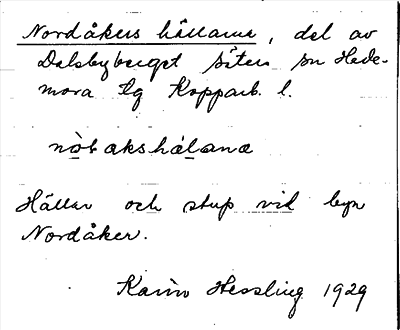 Nordåkers hällarna, del av
Dalsbyberget Säters sn Hede-
mora tg Kopparb. l.
Hällar och stup vid byn
Nordåker.
Karin Hessling 1929